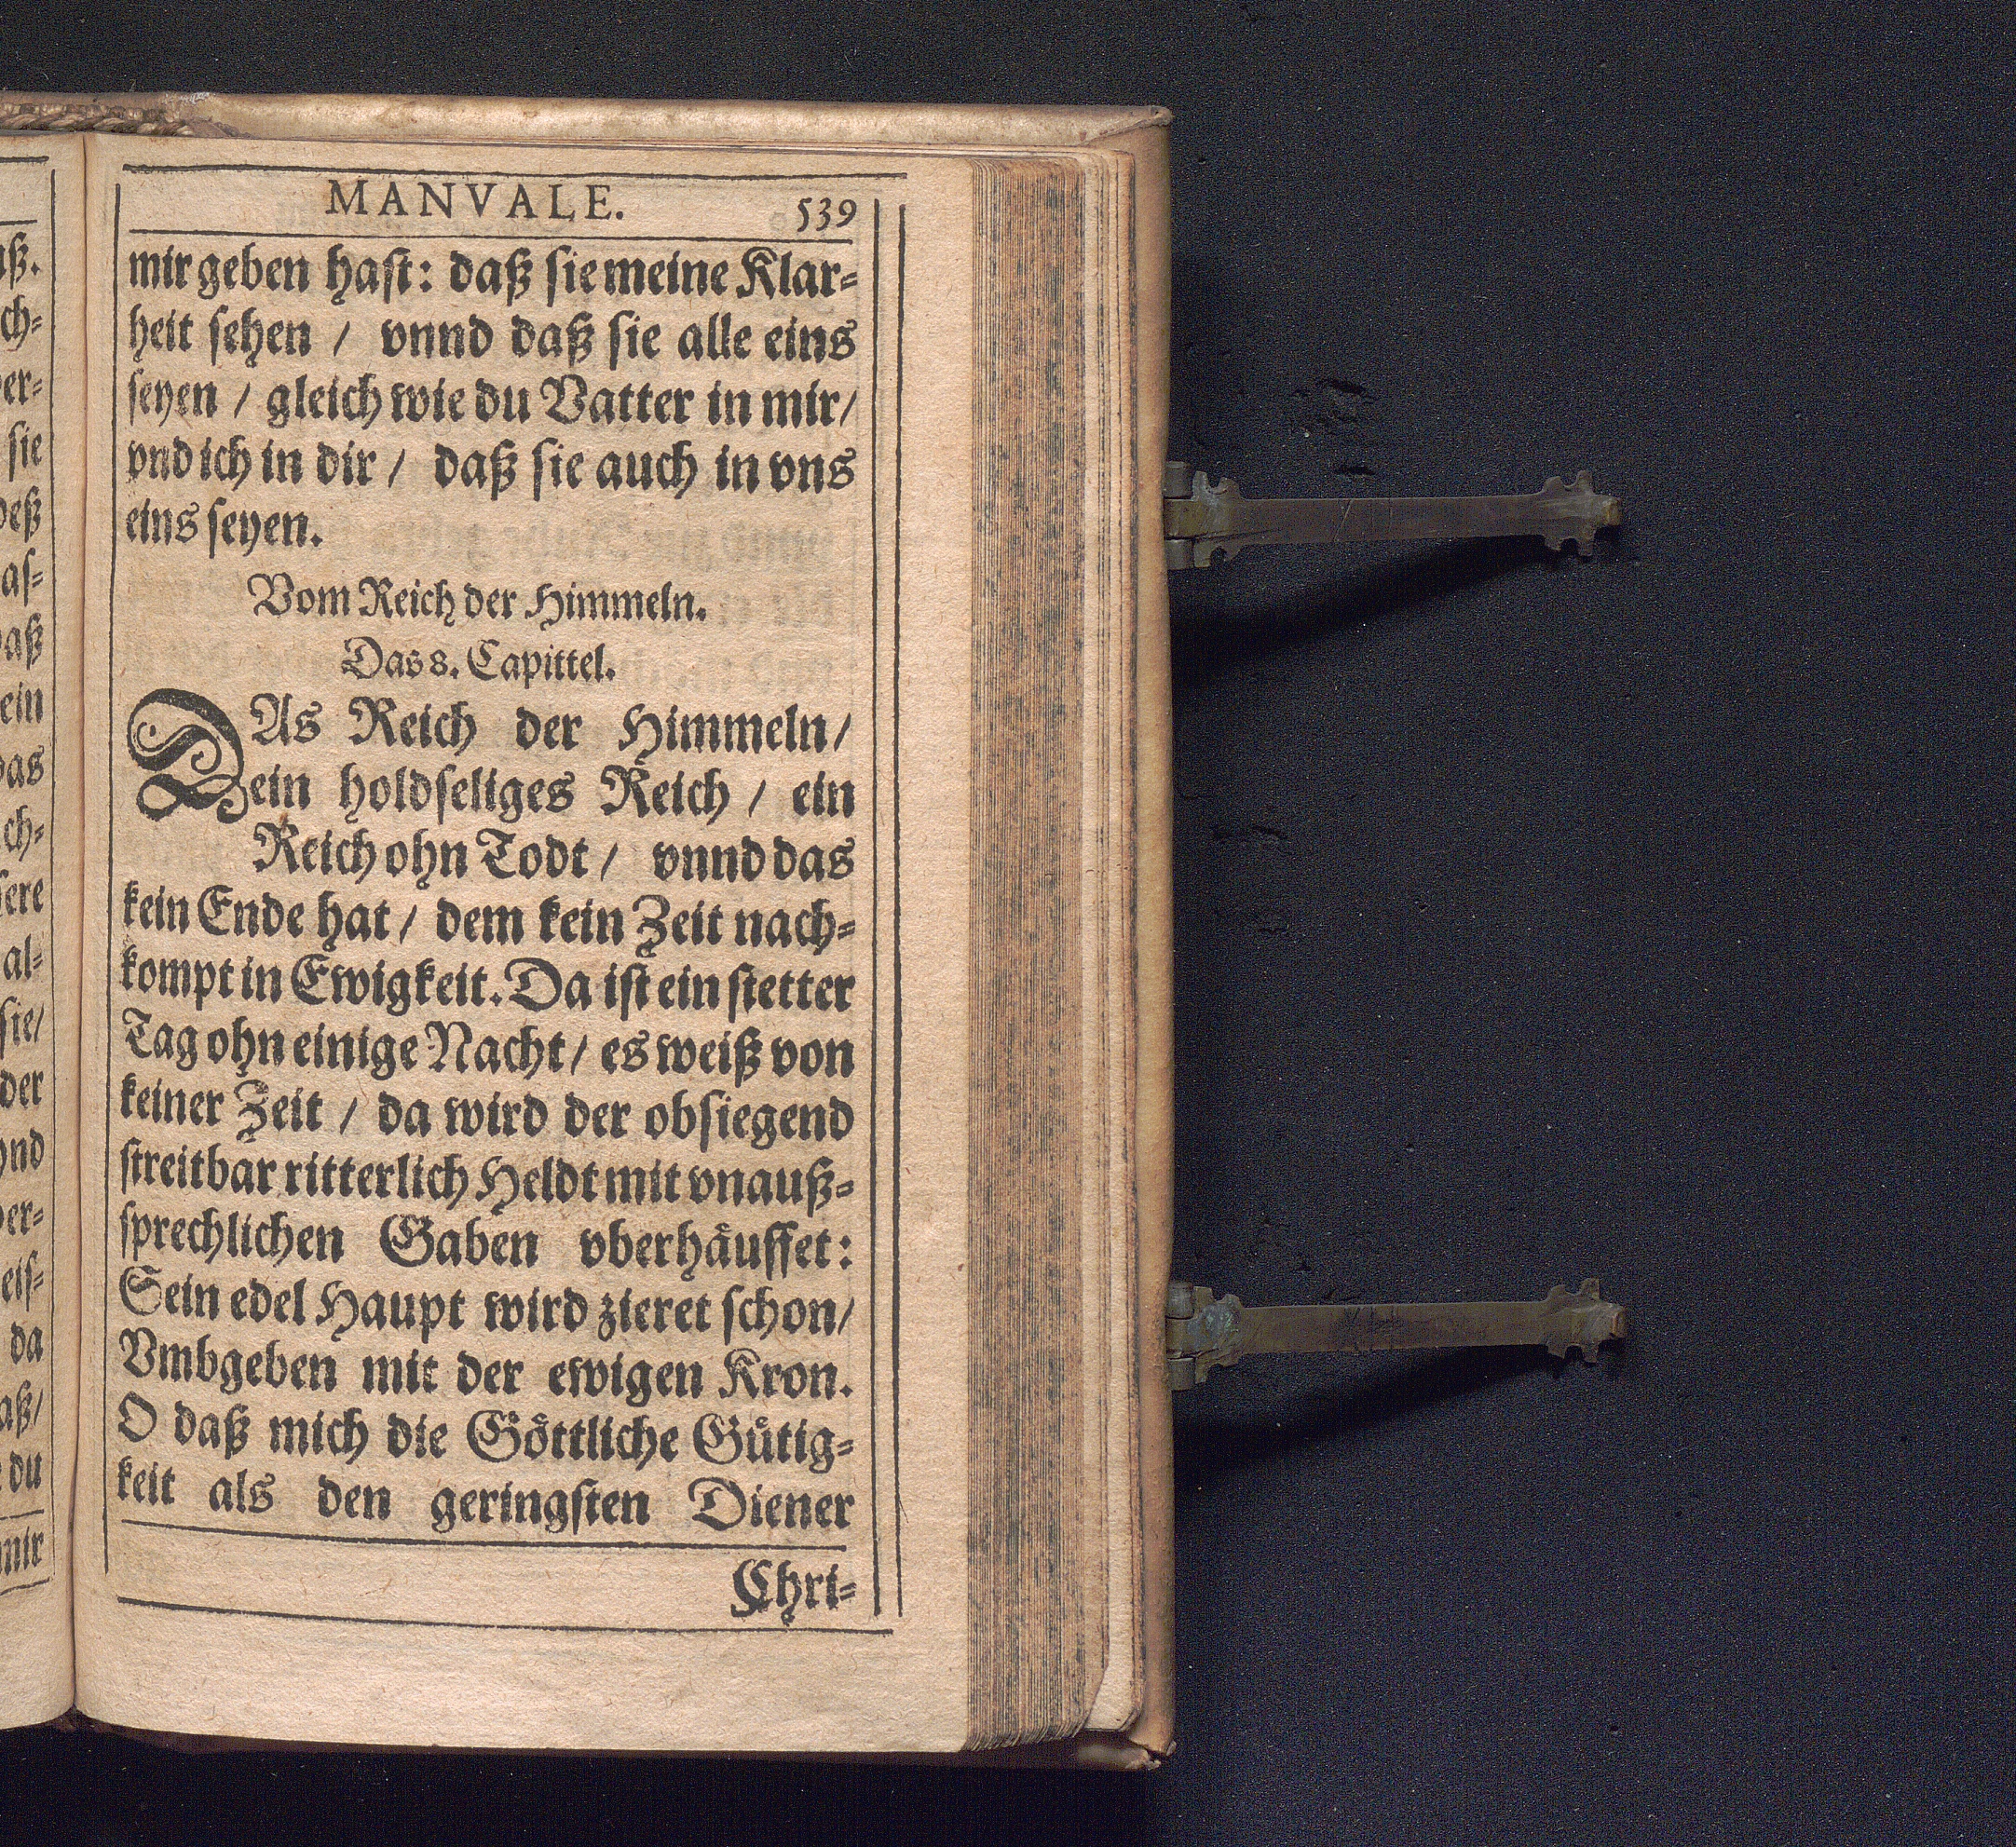 MANVALE. 539
mir geben hast: daß sie meine Klar-
heit sehen / vnnd daß sie alle eins
seyen / gleich wie du Vatter in mir/
vnd ich in dir / daß sie auch in vns
eins seyen.
Vom Reich der Himmeln.
Das 8. Capittel.
DAs Reich der Himmeln/
ein holdseliges Reich / ein
Reich ohn Todt / vnnd das
kein Ende hat / dem kein Zeit nach-
kompt in Ewigkeit. Da ist ein stetter
Tag ohn einige Nacht / es weiß von
keiner Zeit / da wird der obsiegend
streitbar ritterlich Heldt mit vnauß-
sprechlichen Gaben vberhäuffet:
Sein edel Haupt wird zieret schon/
Vmbgeben mit der ewigen Kron.
O daß mich die Göttliche Gütig-
keit als den geringsten Diener
Chri-